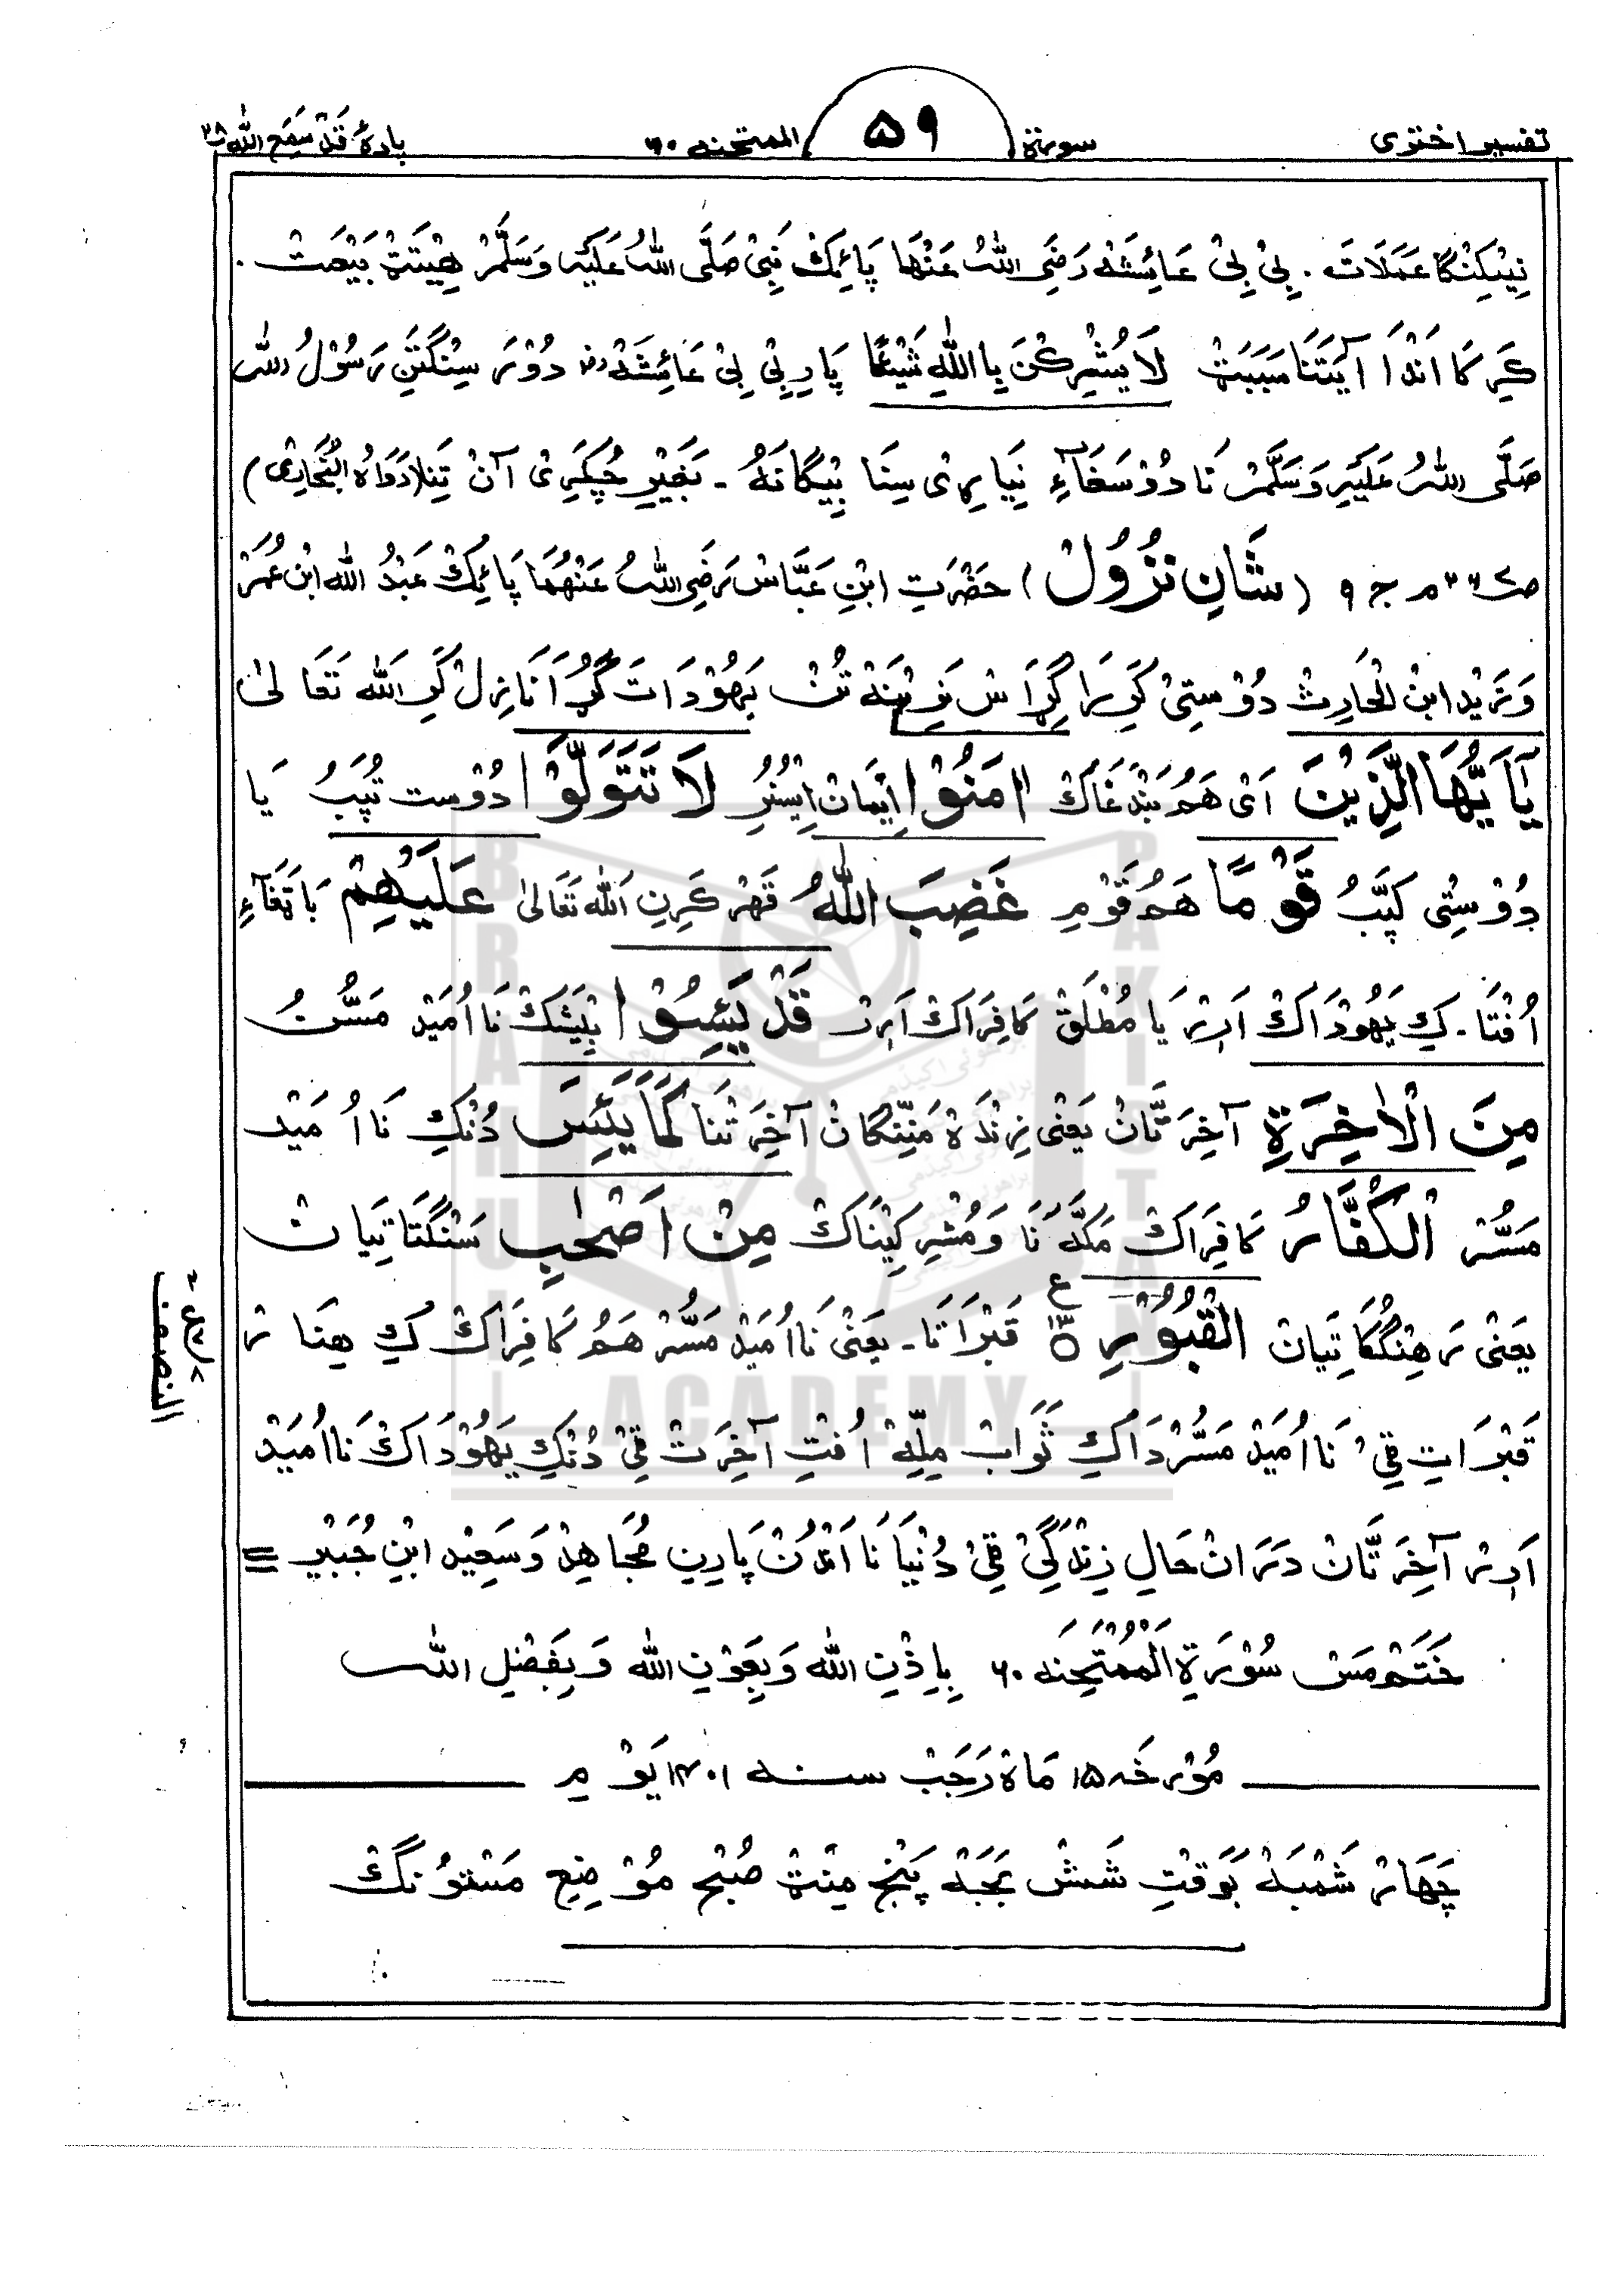 تفسیر اختری سورة ۵۹ الممتحنه ۶۰ پارۂ قَدْ سَمِعَ اللّٰه ۲۸
نِیْکِنْگا عَمَلَاتَہ . بِیْ بِیْ عَائِشَہ رَضَی اللّٰہُ عَنْهَا پَائِکْ نَبِیْ صَلَّی اللّٰہُ عَلَیْہِ وَسَلَّمْ هِیْتَتْ بَیْعَتْ .
کَرِکَا اَنْدَا آیَتَنَا سَبَبَتْ لَا یُشْرِکْنَ بِاللّٰهِ شَیْئًا پَارِ بِیْ بِیْ عَائِشَہْ رض دُوْ رَسِنْگَتَنِ رَسُوْلُ اللّٰہ
صَلَّی اللّٰہُ عَلَیْہِ وَسَلَّمْ نَا دُوْ سَفَآءِ نِیَا رِیْ سِنَا بِیْگَانَہُ ۔ بَغَیْرِ چُکَرِیْ آنْ تِنَا (رَوَاهُ الْبُخَارِی)
م ج ۹ (شَانِ نُزُوْلْ) حَضْرَتِ ابْنِ عَبَّاسْ رَضَی اللّٰہُ عَنْهُمَا پَائِکْ عَبْدُ اللّٰه ابْن عُمَرْ
وَ زَیْد ابْنُ الْحَارِثْ دُوْسْتِیْ کَرِرَا کِرَاسْ نَوِیْنَہ تُنْ یَهُوْدَاتَ گُڑَا نَازِلْ کَرِ اَللّٰه تَعَالیٰ
یٰٓاَیُّهَا الَّذِیْنَ اَیْ هَمُ بَنْدَغَاکْ اٰمَنُوْا اِیْمَان اِیْسُنُرِ لَا تَتَوَلَّوْا دُوْست تِپَبُ یَا
دُوْسْتِی کَپَّبُ قَوْمًا هَمُ قَوْمِ غَضِبَ اللّٰهُ قَهْر کَرِنِ اَللّٰه تَعَالیٰ عَلَیْهِمْ بَاتَغَآءِ
اُفْتَا ۔ کِ یَهُوْدَاکْ اَرِرْ یَا مُطْلَقْ کَافِرَاکْ اَرِرْ قَدْ یَئِسُوْا بِیْشَکْ نَا اُمَیْد مَسُّرْ
مِنَ الْاٰخِرَةِ آخِرَتَّانْ یَعْنِی زِنْدَہ مَنِنْگَانْ آخِرَتَنَا کَمَا یَئِسَ دُنْکِ نَا اُمَیْد
مَسُّر الْکُفَّارُ کَافِرَاکْ مَکَّہ نَا وَ مُشْرِکِیْنَاکْ مِنْ اَصْحٰبِ سَنْگَتَاتِیَانْ
یَعْنِی رَهِنْگُکَاتِیَانْ الْقُبُوْرِ ۝ ع قَبْرَانَا ۔ یَعْنِی نَا اُمَیْد مَسُّر هَمُ کَافِرَاکْ کِ هِنَارْ
قَبْرَاتِ قِیْ نَا اُمَیْد مَسُّر دَاکِ ثَوَابْ مِلِّهْ اُفْتِ آخِرَتْ قِیْ دُنْکِ یَهُوْدَاکْ نَا اُمَیْد
اَرِرْ آخِرَتَّانْ دَرَانْ حَالِ زِنْدَگِیْ قِیْ دُنْیَا نَا اَنْدُنْ پَارِنِ مُجَاهِدْ وَ سَعِیْد ابْنِ جُبَیْرْ =
خَتَم مَسْ سُوْرَةِ الْمُمْتَحِنَه ۶۰ بِاِذْنِ اللّٰه وَ بِعَوْنِ اللّٰه وَ بِفَضْلِ اللّٰہ
مُؤرَّخَہ ۱۵ مَاہ رَجَبْ سنہ ۱۴۰۱ یَوْم
چَهَارْ شَمْبَہْ بَوَقْتِ شَشْ بَجَہْ پَنْج مِنَتْ صُبْح مُوْضِع مَسْتُوْنگ
النصف
BRAHUI ACADEMY PAKISTAN